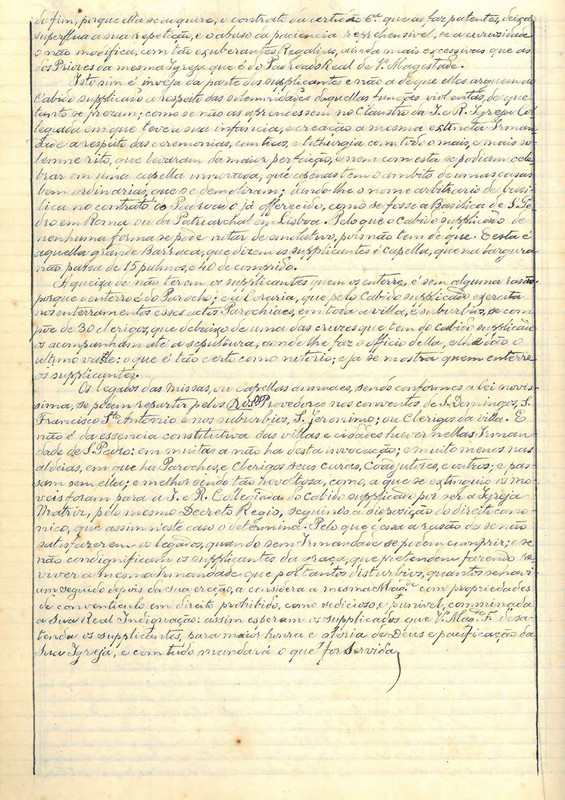 do fim, porque ella se adquire, o contrato da certidão 6ª que as faz patentes, deixa
superflua a sua repetição, e o abuso da paciencia reprehensivel, se a curiosidade
o não modifica, com tão exuberantes Regalias, ainda mais excessivas que as
dos Priores da mesma Igreja que é do Padroado Real de Vª Magestade.
Isto sim é inveja da parte dos supplicantes e não a de que elles arguem ao
Cabido supplicado a respeito das solemnidades daquellas funções violentas, de que
tanto se prezam; como se não as aprendessem no Claustro da I. e R. Igreja Col
legiada em que teve a sua infancia, e creação a mesma extincta Irman
dade a respeito das ceremonias, cantico, e lithurgia com todo o mais, e mais so
lemne rito, que levaram da maior perfeição, e nem com esta se podiam cele
brar em uma capella innovada, que apenas tem o ambito de umas casas
bem ordinarias, que se demoliram; dando-lhe o nome arbitrario de basi
lica no contrato do Padroado já offerecido, como se fosse a Basilica de S. Pe
dro em Roma ou da Patriarchal em Lisboa. Pelo que o Cabido supplicado de
nenhuma forma se póde notar de emolutivo, pois não tem de que. E esta é
aquella grande Barraca, que dizem os supplicantes é capella, que na largura
não passa de 15 palmos, e 40 de comprido.
A queixa de não terem os supplicantes quem os enterre, é sem alguma rasão
porque o enterro é do Parocho; e a Coraria, que pelo Cabido supplicado exercita
nos enterramentos esses actos Parochiaes, em toda a villa, e suburbios, se com
põe de 30 clerigos, que debaixo de uma das cruzes que tem do Cabido supplicado
os acompanham até a sepultura, aonde lhe faz o officio della, e lhe dão o
ultimo valle: o que é tão certo como notorio; e ja se mostra quem enterre
os supplicantes.
Os legados das missas, ou capellas annuaes, sendo conformes a lei novis
sima, se podem repartir pelos Provedores nos conventos de S. Domingos, S.
Francisco Stº Antonio e nos suburbios, S. Jeronimo; ou Clerigos da villa. E
não é da essencia constitutiva das villas e cidades haver nellas Irman
dade de S. Pedro: em muitas a não ha desta invocação; e muito menos nas
aldeias, em que ha Parochos, e Clerigos seus curas, Coadjutores, e outros; e pas
sam sem ella; e melhor sendo tão revoltosa, como, a que se extinguio os mo
veis foram para a I. e R. Collegiada do Cabido supplicado por ser a Igreja
Matriz, pelo mesmo Decreto Regio, seguindo a disposição do direito cano
nico, que assim neste caso o determina. Pelo que cessa a rasão de se não
satisfazerem os legados, quando sem Irmandade se podem cumprir; e se
não condignificam os supplicantes da graça, que pretendem fazendo re
viver a mesma Irmandade que por tantos disturbios, quantos se havi
am seguido depois da sua ereção, a considera a mesma Magde com propriedades
de conventiculo em direito prohibido, como sedicioso, e punivel, comminada
a Sua Real Indignação: assim esperam os supplicados que Vª Magde Fª desa
tenda os supplicantes, para maior honra e gloria de Deus e pacificação da
Sua Igreja, e com tudo mandará o que fôr Servida